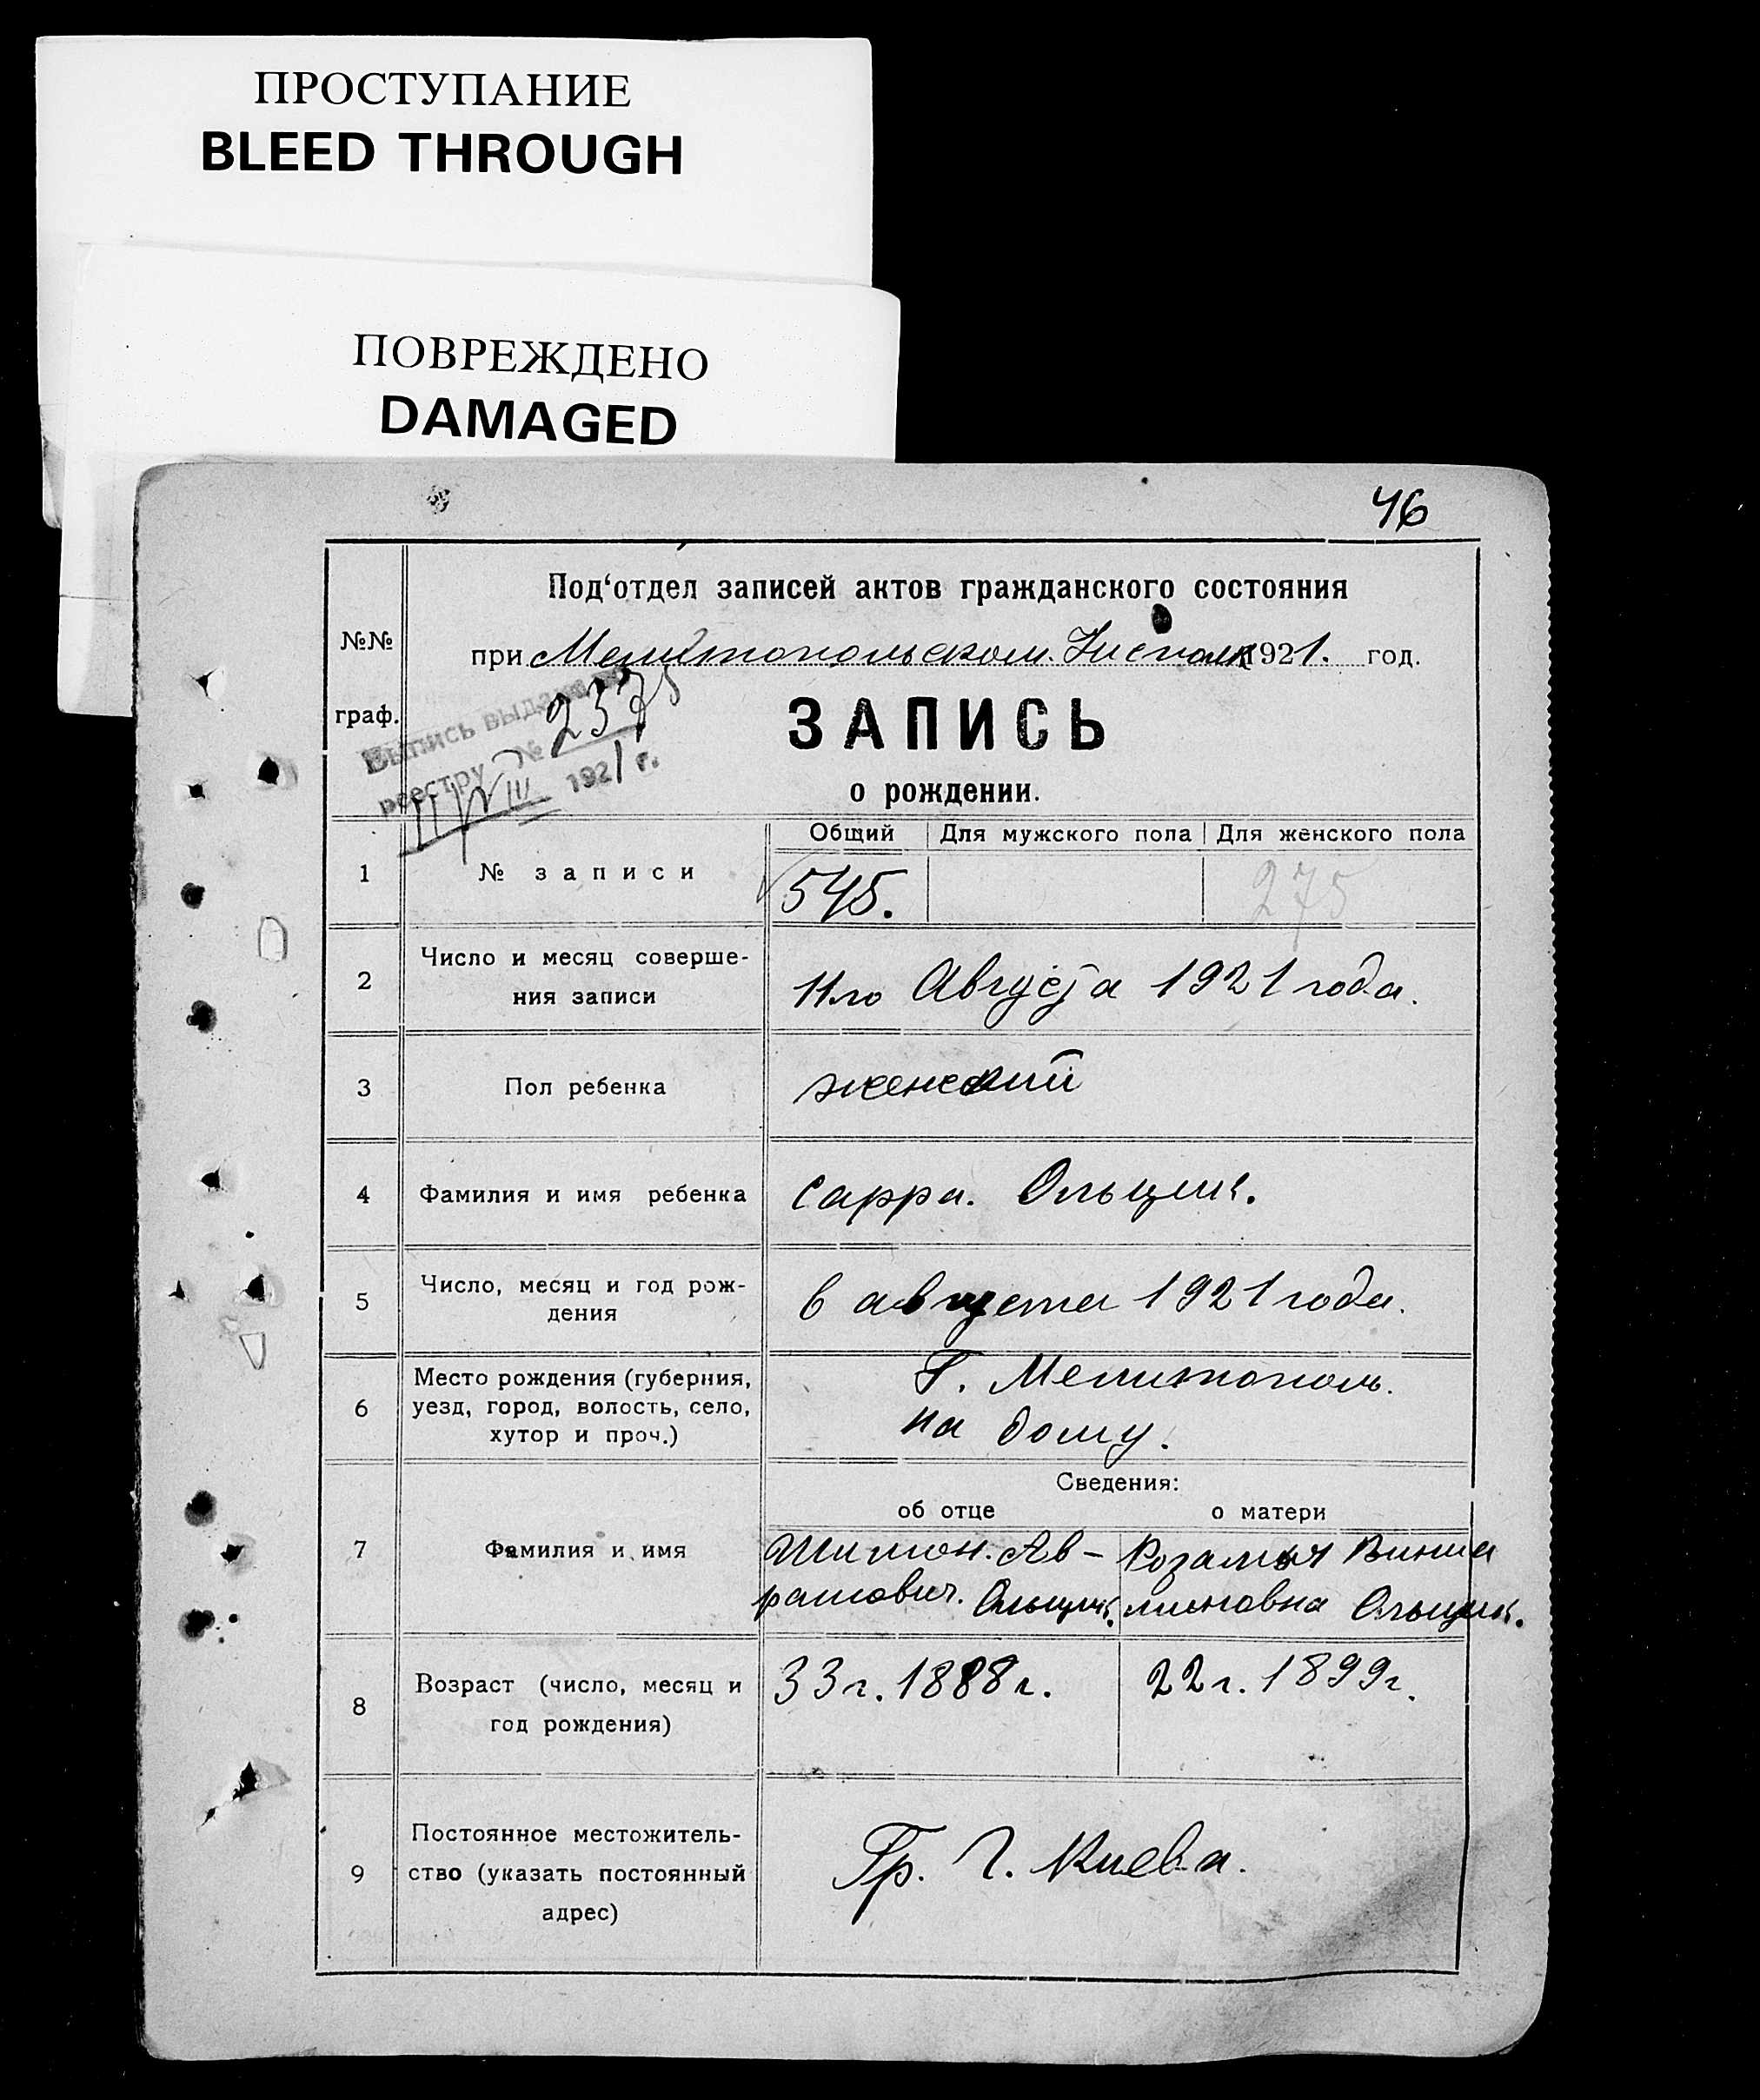 ПРОСТУПАНИЕ
BLEED THROUGH
ПОВРЕЖДЕНО
DAMAGED
46
Под‘отдел записей актов гражданского состояния
№№
при Мелитопольском. Исполк 1921. год.
граф.
Выпись выдана по
реестру № 2375
11/VIII 1921 г.
ЗАПИСЬ
о рождении.
Общий Для мужского пола Для женского пола
1 № записи 545. 275
2 Число и месяц соверше-
ния записи 11го Августа 1921 года.
3 Пол ребенка женский
4 Фамилия и имя ребенка Сарра. Ольщик.
5 Число, месяц и год рож-
дения 6 августа 1921 года.
6 Место рождения (губерния,
уезд, город, волость, село,
хутор и проч.)
Г. Мелитополь.
на дому.
Сведения:
об отце о матери
7 Фамилия и имя
Шимон. Ав-
рамович. Ольщик.
мновна Ольщик.
8 Возраст (число, месяц и
год рождения)
33 г. 1888 г. 22 г. 1899 г.
9 Постоянное местожитель-
ство (указать постоянный
адрес)
Гр. Г. Киева.